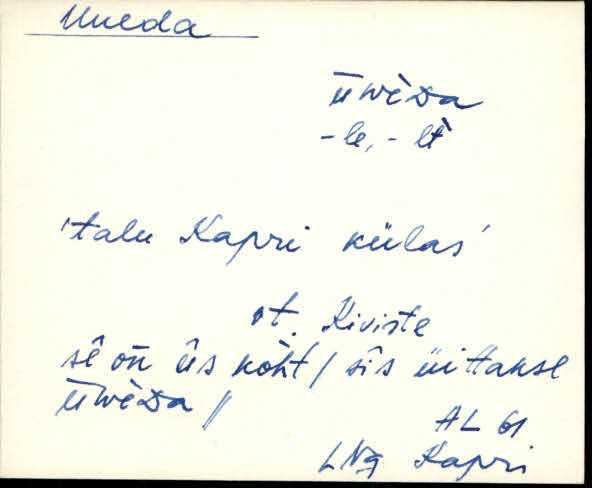 Uueda
ūwèDa
-le, -lt
'talu Kapri külas'
vt. Kiviste
sê on üs kòht / sîs üittakse
ūwèDa //
AL 61
LNg Kapri